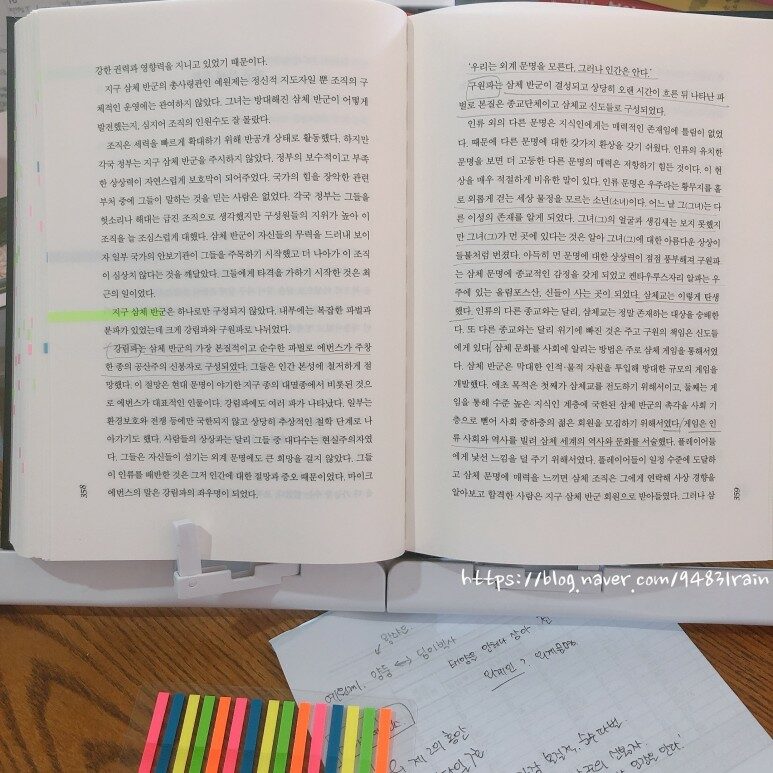 강한 권력과 영향력을 지니고 있었기 때문이다.
지구 삼체 반군의 총사령관인 예원제는 정신적 지도자일 뿐 조직의 구
체적인 운영에는 관여하지 않았다. 그녀는 방대해진 삼체 반군이 어떻게
발전했는지, 심지어 조직의 인원수도 잘 몰랐다.
조직은 세력을 빠르게 확대하기 위해 반공개 상태로 활동했다. 하지만
각국 정부는 지구 삼체 반군을 주시하지 않았다. 정부의 보수적이고 부족
한 상상력이 자연스럽게 보호막이 되어주었다. 국가의 힘을 장악한 관련
부처 중에 그들이 말하는 것을 믿는 사람은 없었다. 각국 정부는 그들을
헛소리나 해대는 급진 조직으로 생각했지만 구성원들의 지위가 높아 이
조직을 늘 조심스럽게 대했다. 삼체 반군이 자신들의 무력을 드러내 보이
자 일부 국가의 안보기관이 그들을 주목하기 시작했고 더 나아가 이 조직
이 심상치 않다는 것을 깨달았다. 그들에게 타격을 가하기 시작한 것은 최
근의 일이었다.
지구 삼체 반군은 하나로만 구성되지 않았다. 내부에는 복잡한 파벌과
분파가 있었는데 크게 강림파와 구원파로 나뉘었다.
강림파는 삼체 반군의 가장 본질적이고 순수한 파벌로 에번스가 주창
한 종의 공산주의 신봉자로 구성되었다. 그들은 인간 본성에 철저하게 절
망했다. 이 절망은 현대 문명이 야기한 지구 종의 대멸종에서 비롯된 것으
로 에번스가 대표적인 인물이다. 강림파에도 여러 파가 나타났다. 일부는
환경보호와 전쟁 등에만 국한되지 않고 상당히 추상적인 철학 단계로 나
아가기도 했다. 사람들의 상상과는 달리 그들 중 대다수는 현실주의자였
다. 그들은 자신들이 섬기는 외계 문명에도 큰 희망을 걸지 않았다. 그들
이 인류를 배반한 것은 그저 인간에 대한 절망과 증오 때문이었다. 마이크
에번스의 말은 강림파의 좌우명이 되었다.
358
'우리는 외계 문명을 모른다. 그러나 인간은 안다.'
구원파는 삼체 반군이 결성되고 상당히 오랜 시간이 흐른 뒤 나타난 파
벌로 본질은 종교단체이고 삼체교 신도들로 구성되었다.
인류 외의 다른 문명은 지식인에게는 매력적인 존재임에 틀림이 없었
다. 때문에 다른 문명에 대한 갖가지 환상을 갖기 쉬웠다. 인류의 유치한
문명을 보면 더 고등한 다른 문명의 매력은 저항하기 힘든 것이다. 이 현
상을 매우 적절하게 비유한 말이 있다. 인류 문명은 우주라는 황무지를 홀
로 외롭게 걷는 세상 물정을 모르는 소년(소녀)이다. 어느 날 그(그녀)는 다
른 이성의 존재를 알게 되었다. 그녀(그)의 얼굴과 생김새는 보지 못했지
만 그녀(그)가 먼 곳에 있다는 것은 알아 그녀(그)에 대한 아름다운 상상이
들불처럼 번졌다. 아득히 먼 문명에 대한 상상력이 점점 풍부해져 구원파
는 삼체 문명에 종교적인 감정을 갖게 되었고 켄타우루스자리 알파는 우
주에 있는 올림포스산, 신들이 사는 곳이 되었다. 삼체교는 이렇게 탄생
했다. 인류의 다른 종교와는 달리, 삼체교는 정말 존재하는 대상을 숭배한
다. 또 다른 종교와는 달리 위기에 빠진 것은 주고 구원의 책임은 신도들
에게 있다. 삼체 문화를 사회에 알리는 방법은 주로 삼체 게임을 통해서였
다. 삼체 반군은 막대한 인적·물적 자원을 투입해 방대한 규모의 게임을
개발했다. 애초 목적은 첫째가 삼체교를 전도하기 위해서이고, 둘째는 게
임을 통해 수준 높은 지식인 계층에 국한된 삼체 반군의 촉각을 사회 기
층으로 뻗어 사회 중하층의 젊은 회원을 모집하기 위해서였다. 게임은 인
류 사회와 역사를 빌려 삼체 세계의 역사와 문화를 서술했다. 플레이어들
에게 낯선 느낌을 덜 주기 위해서였다. 플레이어들이 일정 수준에 도달하
고 삼체 문명에 매력을 느끼면 삼체 조직은 그에게 연락해 사상 경향을
알아보고 합격한 사람은 지구 삼체 반군 회원으로 받아들였다. 그러나 삼
359
https://blog.naver.com/94831rain
양동 ↔
태양은
외계문명
제 2의 홍안